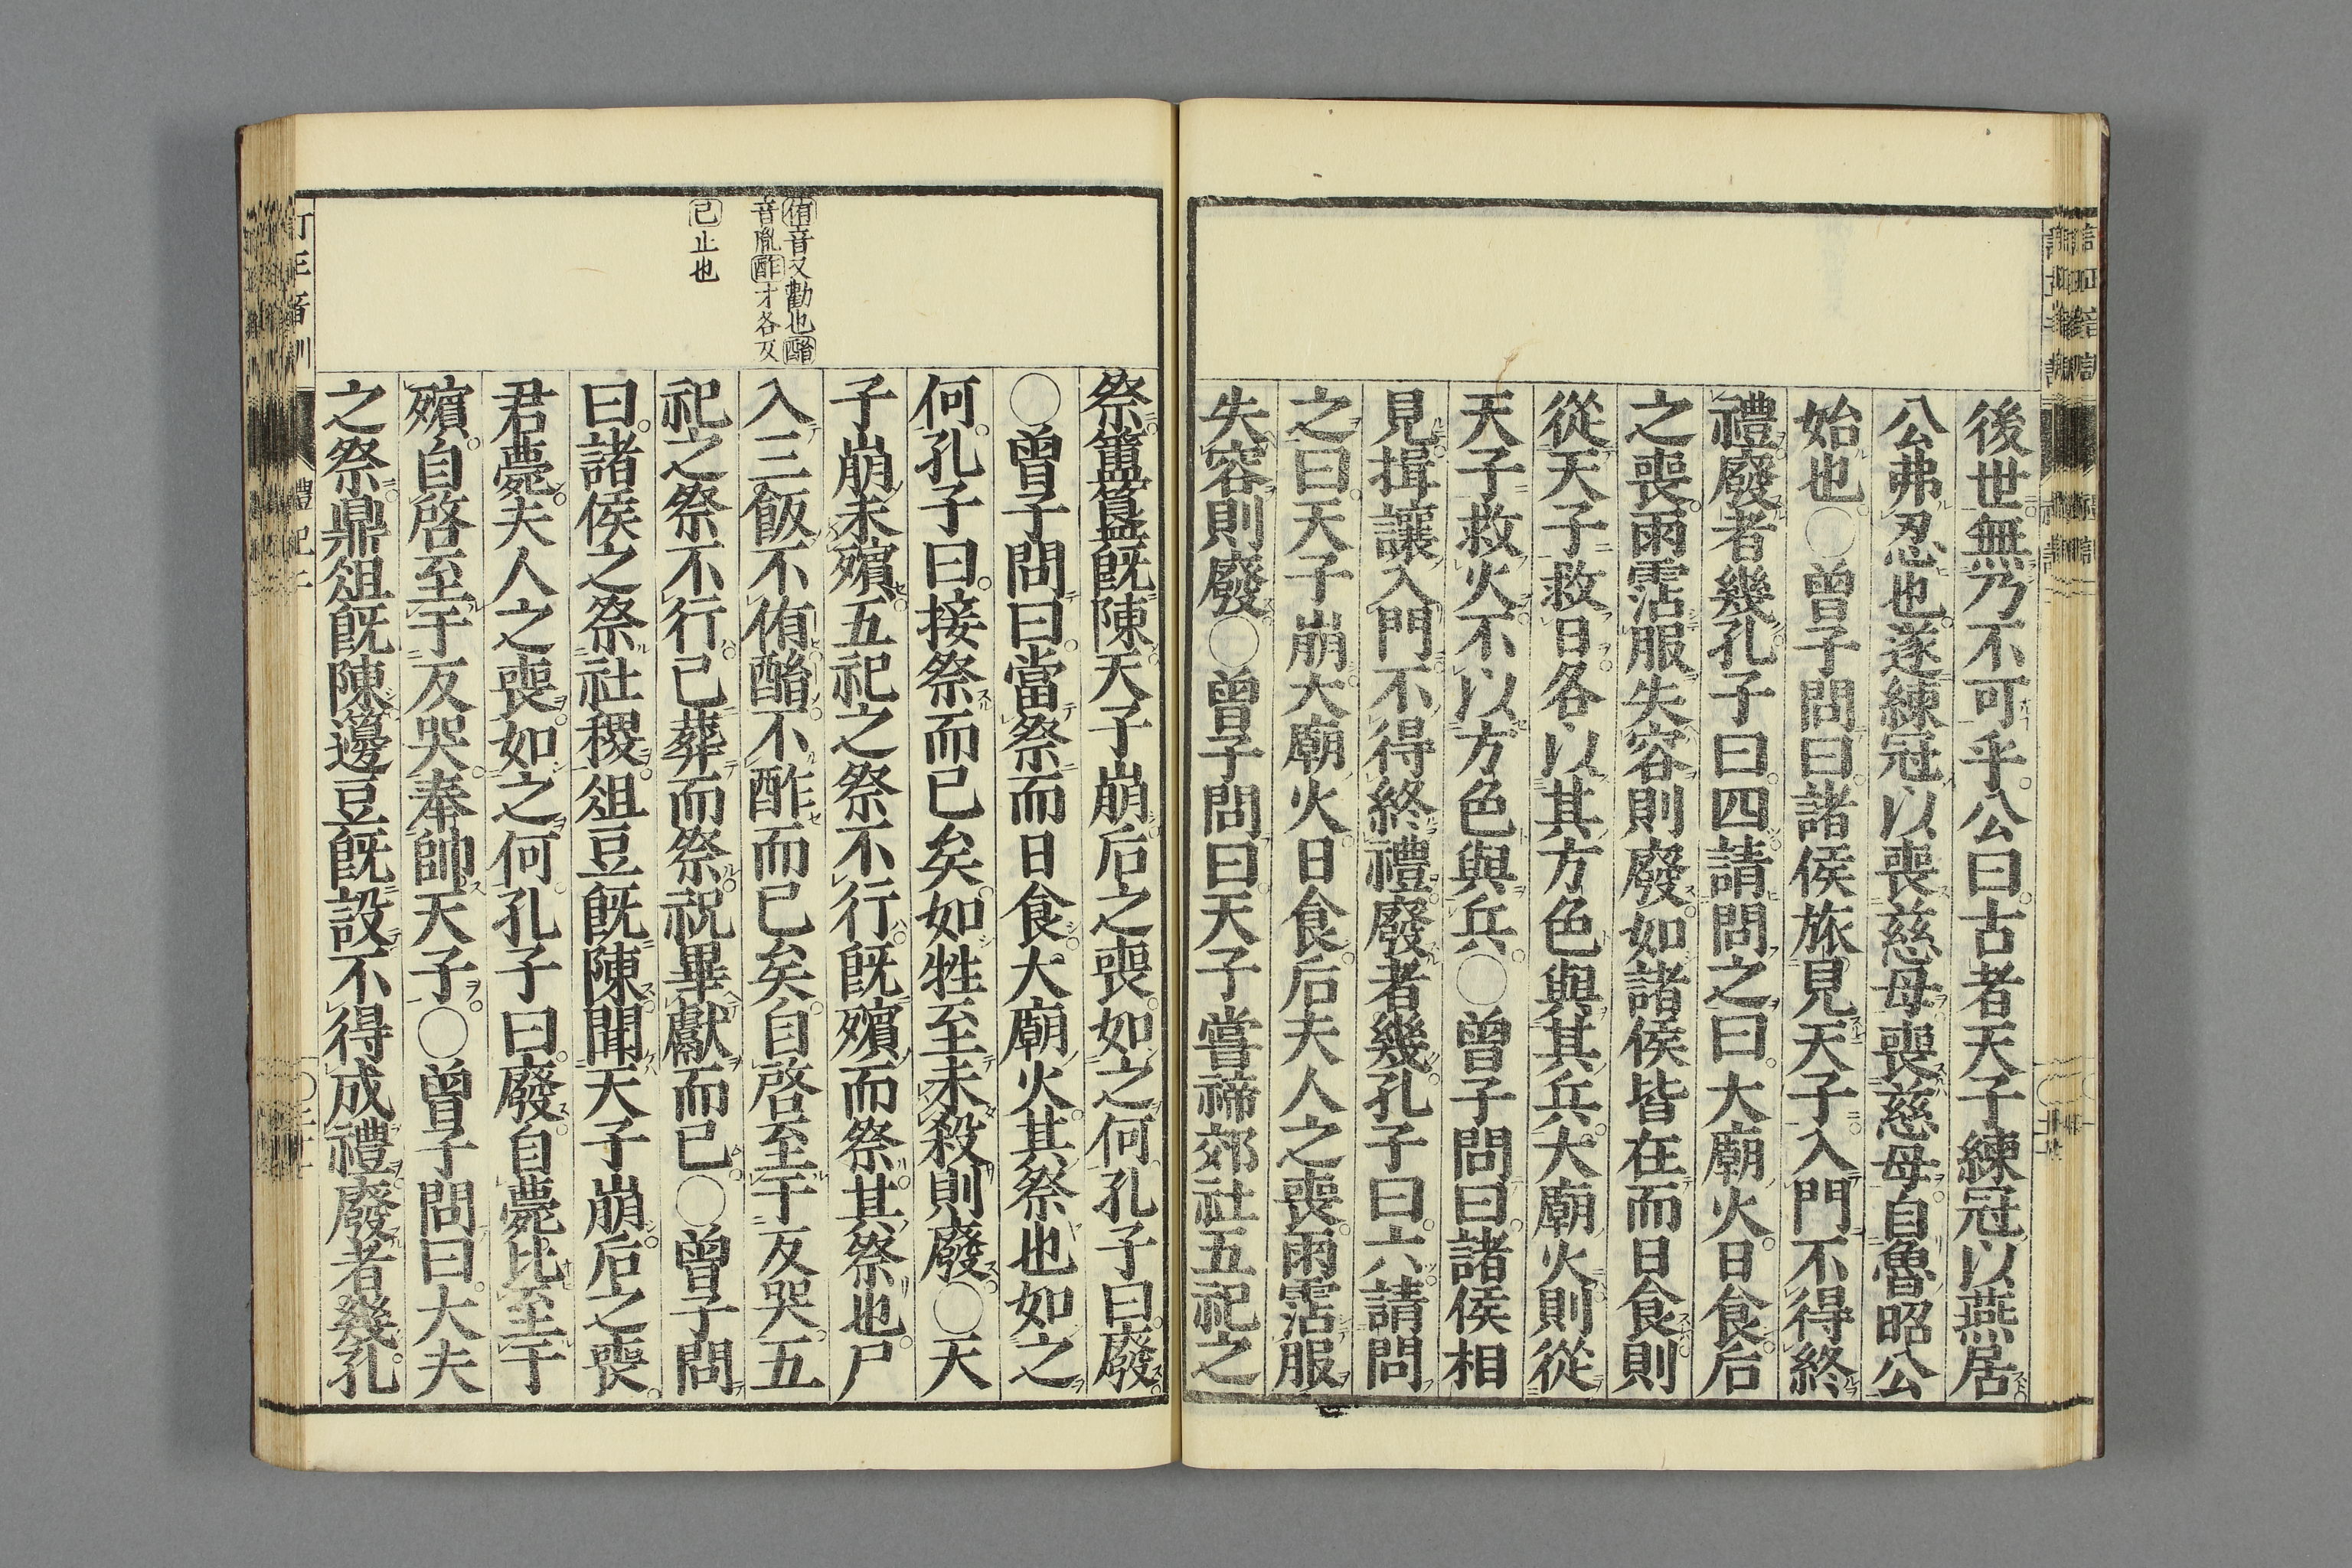 後世無乃不可乎公曰古者天子練冠以燕居
公弗忍也遂練冠以喪慈母喪慈母自魯昭公
始也○曾子問曰諸侯旅見天子入門不得終
禮廢者幾孔子曰四請問之曰大廟火日食后
之喪雨霑服失容則廢如諸侯皆在而日食則
從天子救日各以其方色與其兵大廟火則從
天子救火不以方色與兵○曾子問曰諸侯相
見揖讓入門不得終禮廢者幾孔子曰六請問
之曰天子崩大廟火日食后夫人之喪雨霑服
失容則廢○曾子問曰天子嘗禘郊社五祀之
祭簠簋既陳天子崩后之喪如之何孔子曰廢
○曾子問曰當祭而日食大廟火其祭也如之
何孔子曰接祭而已矣如牲至未殺則廢○天
子崩未殯五祀之祭不行既殯而祭其祭也尸
入三飯不侑酳不酢而已矣自啓至于反哭五
祀之祭不行已葬而祭祝畢獻而已○曾子問
曰諸侯之祭社稷俎豆既陳聞天子崩后之喪
君薨夫人之喪如之何孔子曰廢自薨比至于
殯自啓至于反哭奉帥天子○曾子問曰大夫
之祭鼎俎既陳籩豆既設不得成禮廢者幾孔
侑音又勸也酳
音胤酢才各反
已止也
訂正音訓
禮記二